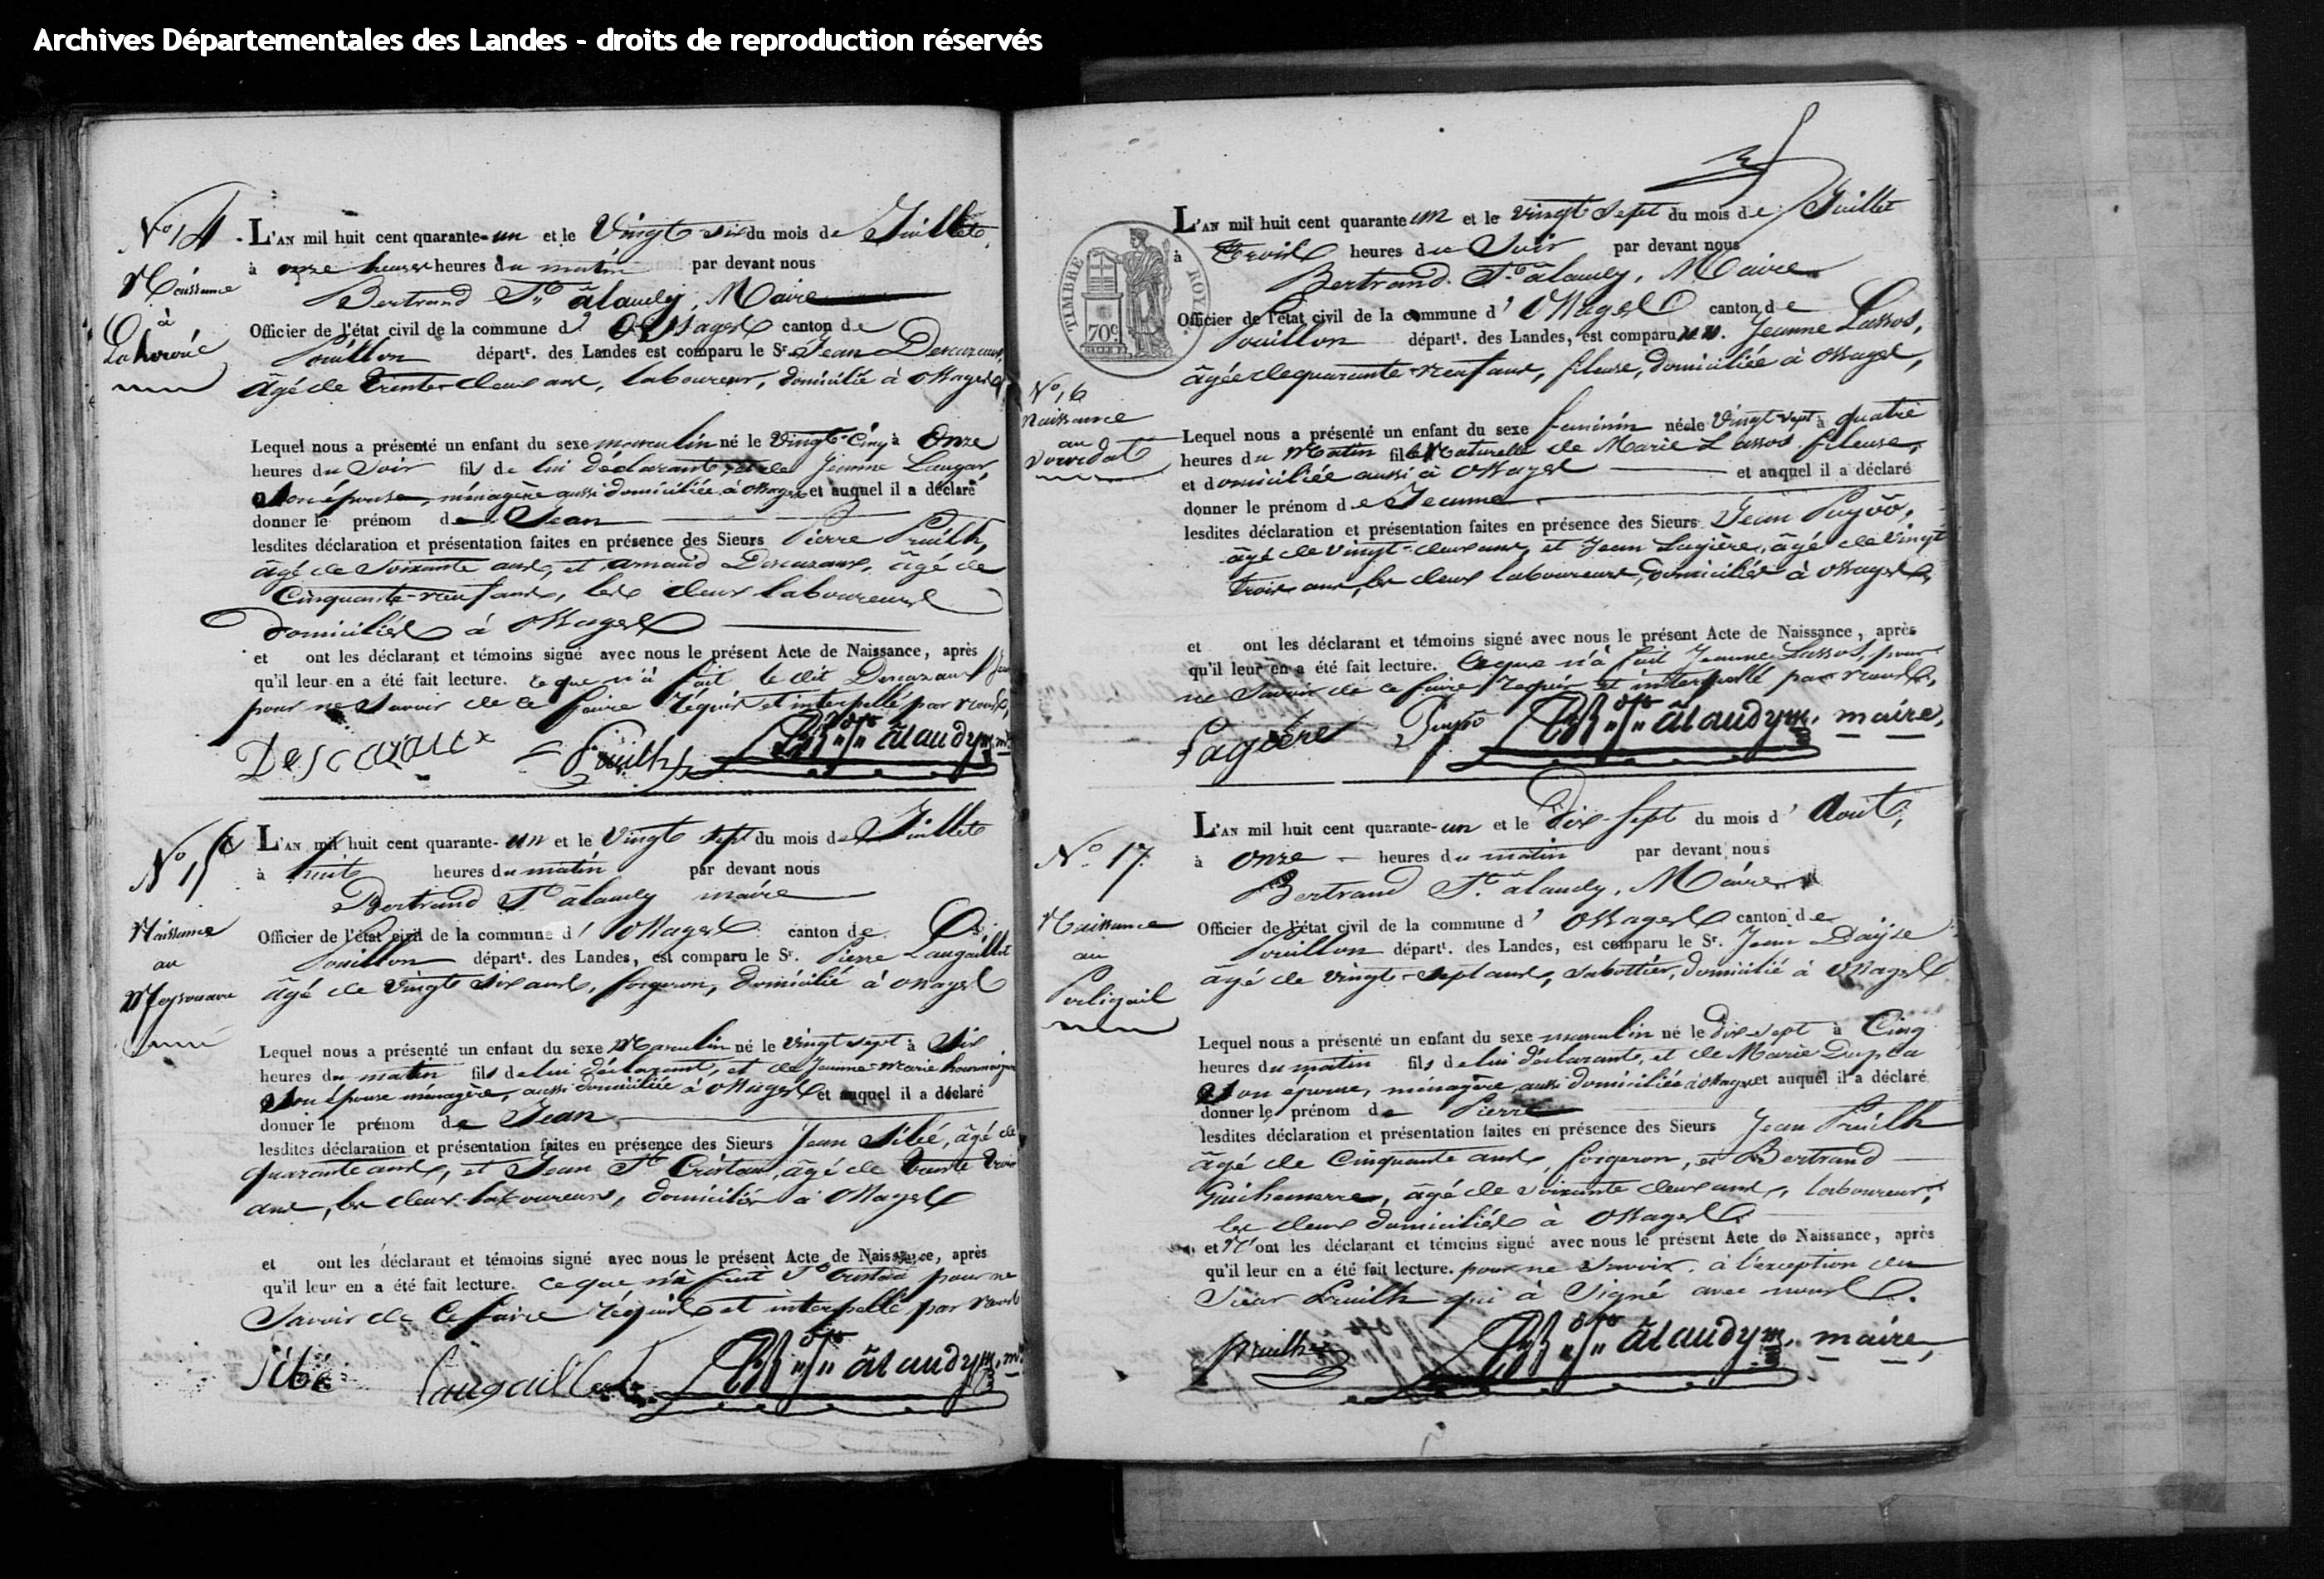 Archives Départementales des Landes - droits de reproduction réservés
N° 14
Naissance
à
Lahoroué
L'AN mil huit cent quarante-un et le Vingt six du mois de Juillet,
à onze heures heures du matin par devant nous
Bertrand St âlaudy, Maire
Officier de l'état civil de la commune d' Ossages canton de
Pouillon départt. des Landes est comparu le Sr. Jean Descazaux,
âgé de trente-deux ans, laboureur, domicilié à Ossages,
Lequel nous a présenté un enfant du sexe masculin né le vingt-cinq à onze
heures du soir fils de lui déclarant, et de Jeanne
son épouse, ménagère aussi domiciliée à Ossages et auquel il a déclaré
donner le prénom de Jean
lesdites déclaration et présentation faites en présence des Sieurs Pierre Pruilh,
âgé de soixante ans, et arnaud Descazaux, âgé de
Cinquante-neuf ans, les deux laboureurs
domiciliés à Ossages
et ont les déclarant et témoins signé avec nous le présent Acte de Naissance, après
qu'il leur en a été fait lecture. ce que n'a fait le dit Descazaux Jean
pour ne savoir de ce faire réquis et interpellé par nous,
Descazaux Pruilh B. St âlaudy, m.
N° 15
Naissance
au
L'AN mil huit cent quarante-un et le Vingt sept du mois de Juillet
à huit heures du matin par devant nous
Bertrand St âlaudy maire
Officier de l'état civil de la commune d' Ossages canton de
Pouillon départt. des Landes, est comparu le Sr. Pierre Laugaillet
âgé de vingt six ans, forgeron, domicilié à Ossages
Lequel nous a présenté un enfant du sexe Masculin né le vingt sept à Six
heures du matin fils de lui déclarant, et de Jeanne-Marie
son épouse ménagère, aussi domiciliée à Ossages et auquel il a déclaré
donner le prénom de Jean
lesdites déclaration et présentation faites en présence des Sieurs Jean Sibé, âgé de
quarante ans, et Jean St Cristau, âgé de trente trois
ans, les deux laboureurs, domiciliés à Ossages
et ont les déclarant et témoins signé avec nous le présent Acte de Naissance, après
qu'il leur en a été fait lecture. ce que n'a fait St Cristau pour ne
Savoir de ce faire réquis et interpellé par nous
Sibé Laugaillet B. St âlaudy, m.
TIMBRE ROYAL
70c
N° 16
Naissance
au
L'AN mil huit cent quarante un et le vingt sept du mois de Juillet
à Trois heures du Soir par devant nous
Bertrand St âlaudy, Maire
Officier de l'état civil de la commune d' Ossages canton de
Pouillon départt. des Landes, est comparu Jeanne Lassos,
âgée de quarante-neuf ans, fileuse, domiciliée à Ossages,
Lequel nous a présenté un enfant du sexe feminin née le Vingt-sept à quatre
heures du Matin fille Naturelle de Marie Lassos fileuse,
et domiciliée aussi à Ossages et auquel il a déclaré
donner le prénom de Jeanne
lesdites déclaration et présentation faites en présence des Sieurs Jean Puyòo,
âgé de vingt-deux ans, et Jean Lagière, âgé de vingt
trois ans, les deux laboureurs, domiciliés à Ossages,
et ont les déclarant et témoins signé avec nous le présent Acte de Naissance, après
qu'il leur en a été fait lecture. ce que n'a fait Jeanne Lassos, pour
ne savoir de ce faire réquis et interpellé par nous,
Lagière Puyòo B. St âlaudy, maire,
N° 17
Naissance
au
Perligail
L'AN mil huit cent quarante-un et le dix-sept du mois d' Aout,
à onze heures du matin par devant nous
Bertrand St âlaudy, Maire
Officier de l'état civil de la commune d' Ossages canton de
Pouillon départt. des Landes, est comparu le Sr. Jean
âgé de vingt-sept ans, sabottier, domicilié à Ossages
Lequel nous a présenté un enfant du sexe masculin né le dix-sept à Cinq
heures du matin fils de lui déclarant, et de Marie
son épouse, ménagère, aussi domiciliée à Ossages et auquel il a déclaré
donner le prénom de Pierre
lesdites déclaration et présentation faites en présence des Sieurs Jean Pruilh
âgé de Cinquante ans, forgeron, et Bertrand
Guichemerre, âgé de soixante deux ans, laboureur,
les deux domiciliés à Ossages
et N'ont les déclarant et témoins signé avec nous le présent Acte de Naissance, après
qu'il leur en a été fait lecture. pour ne savoir. à l'exception du
Sieur Pruilh qui à Signé avec nous.
Pruilh B. St âlaudy, maire,